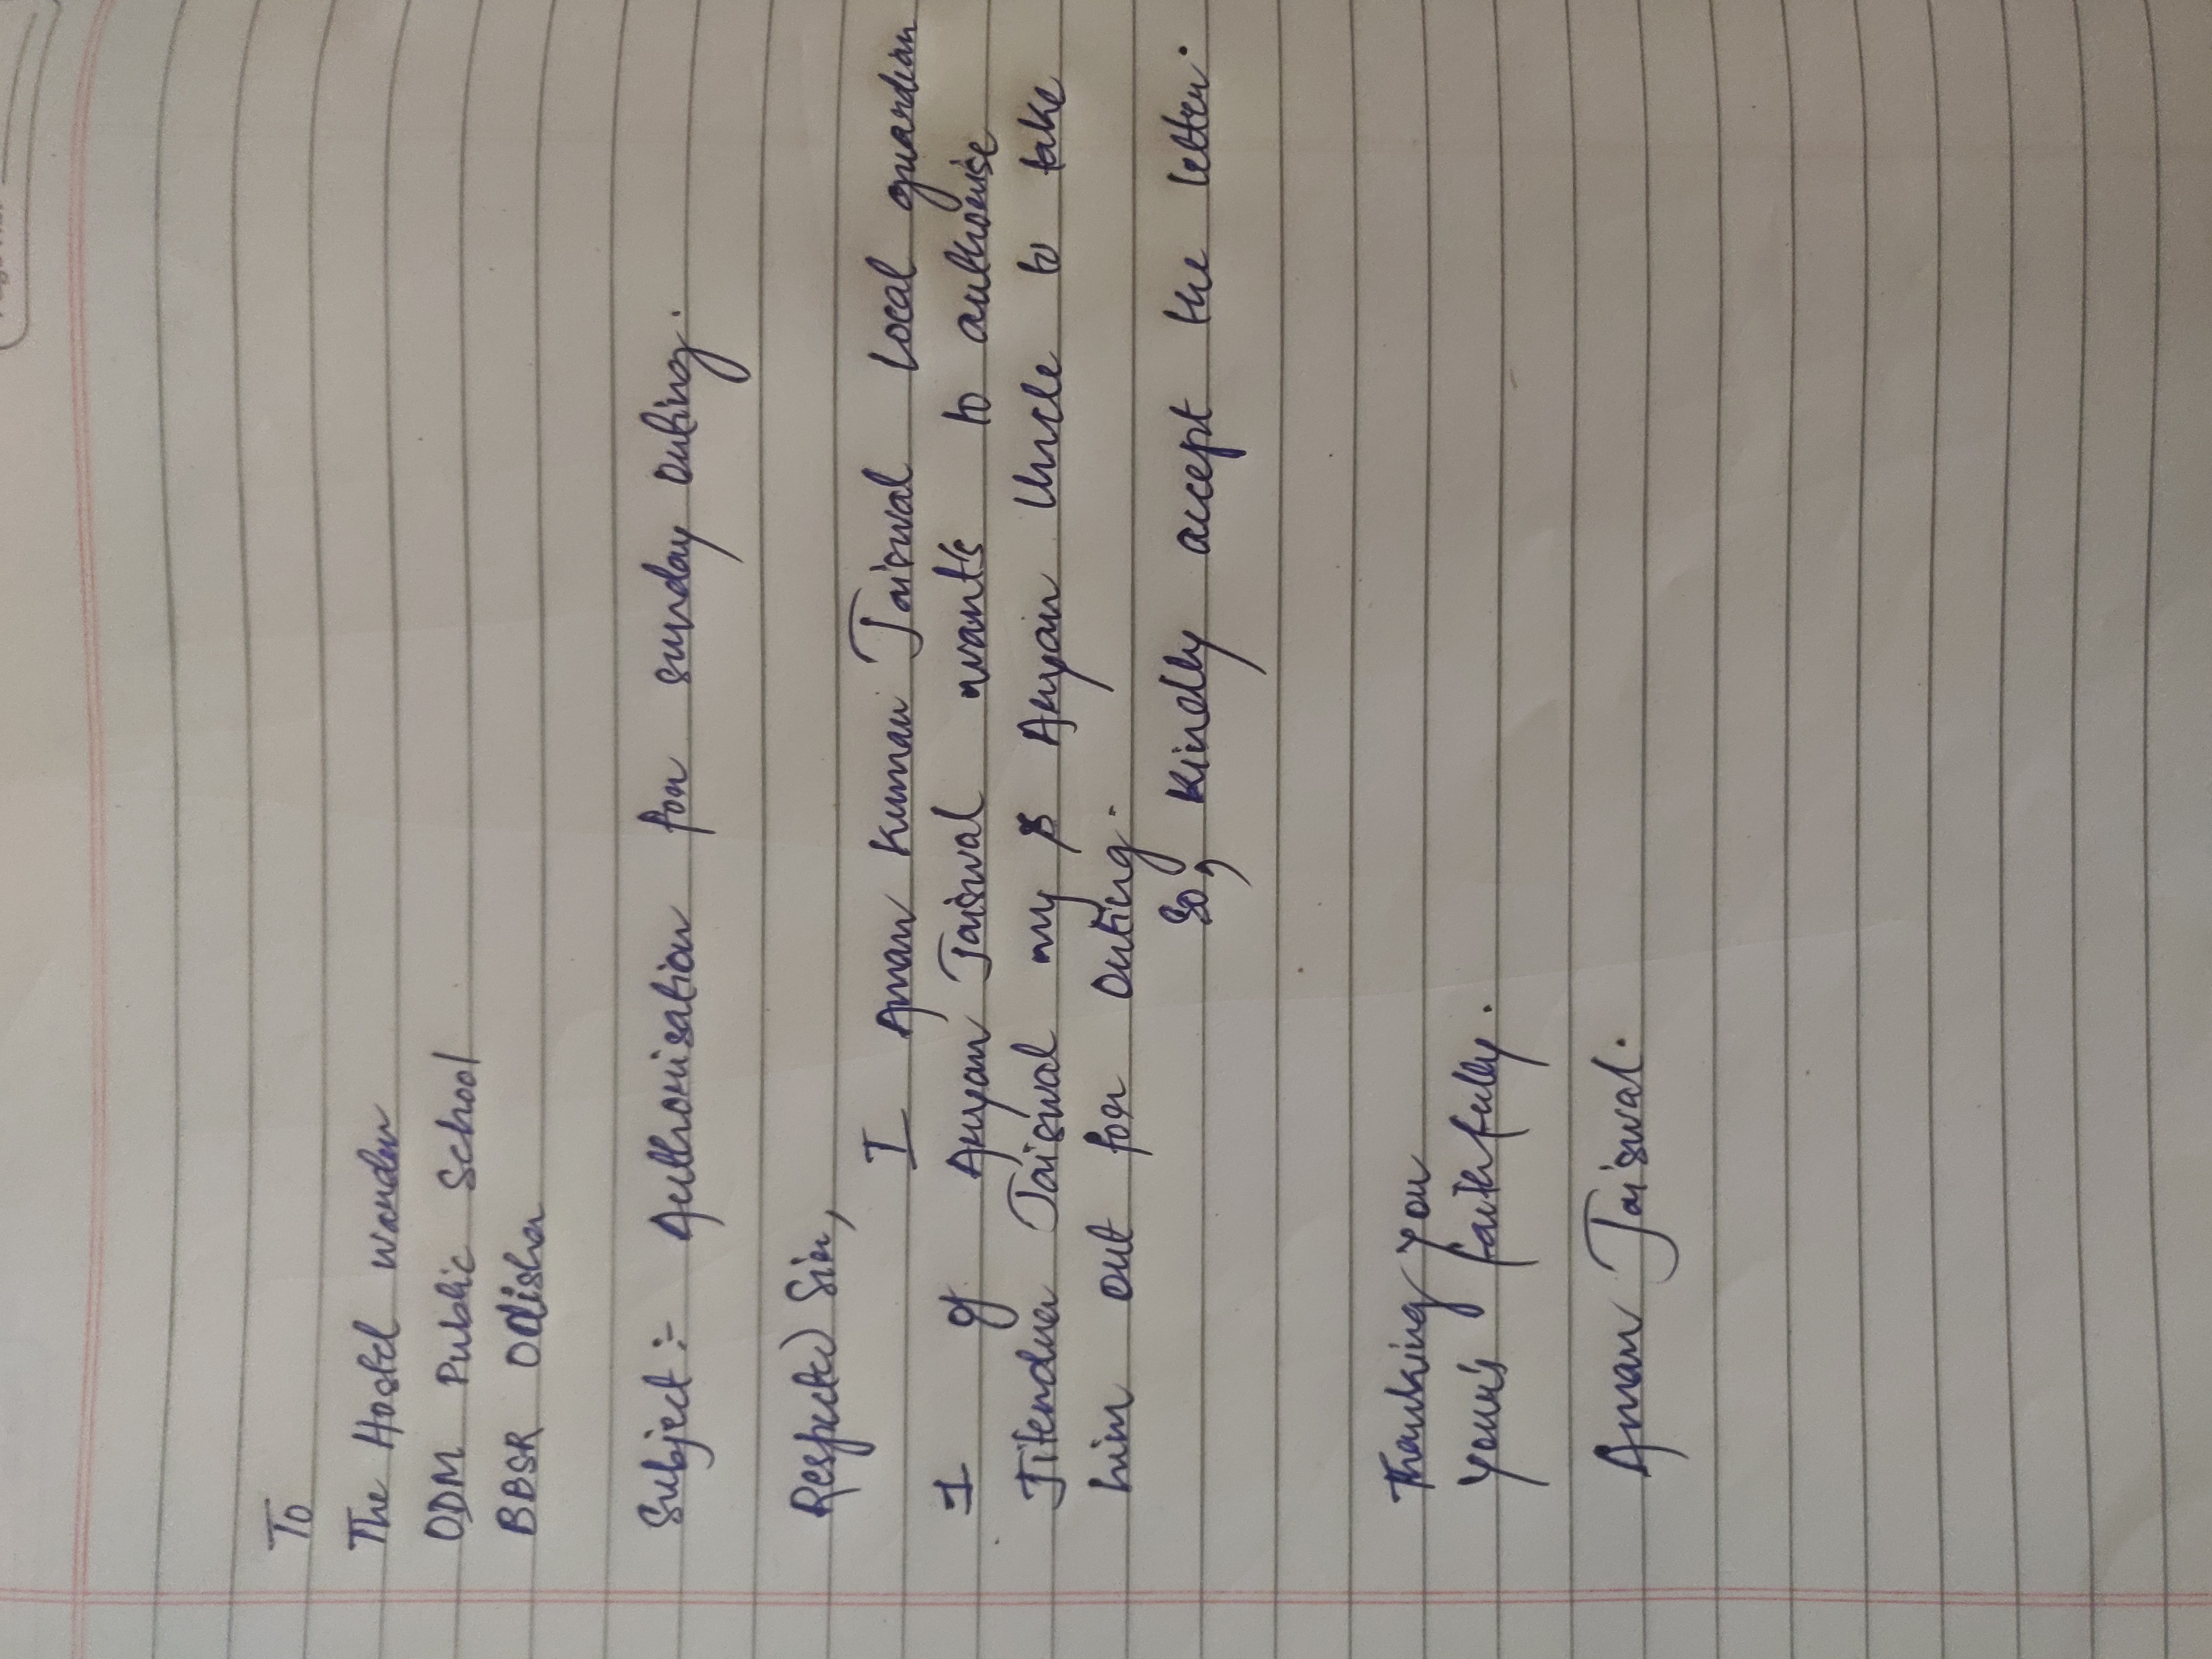 To
The Hostel warden
ODM Public School
BBSR Odisha
Subject :- Authorisation for sunday outing.
Respected Sir,
I Aman Kumar Jaiswal Local guardian
I of Aryan Jaiswal wants to authorise
Jitendra Jaiswal my Aryan Uncle to take
him out for outing.
So, kindly accept the letter.
Thanking you
Yours faithfully.
Aman Jaiswal.